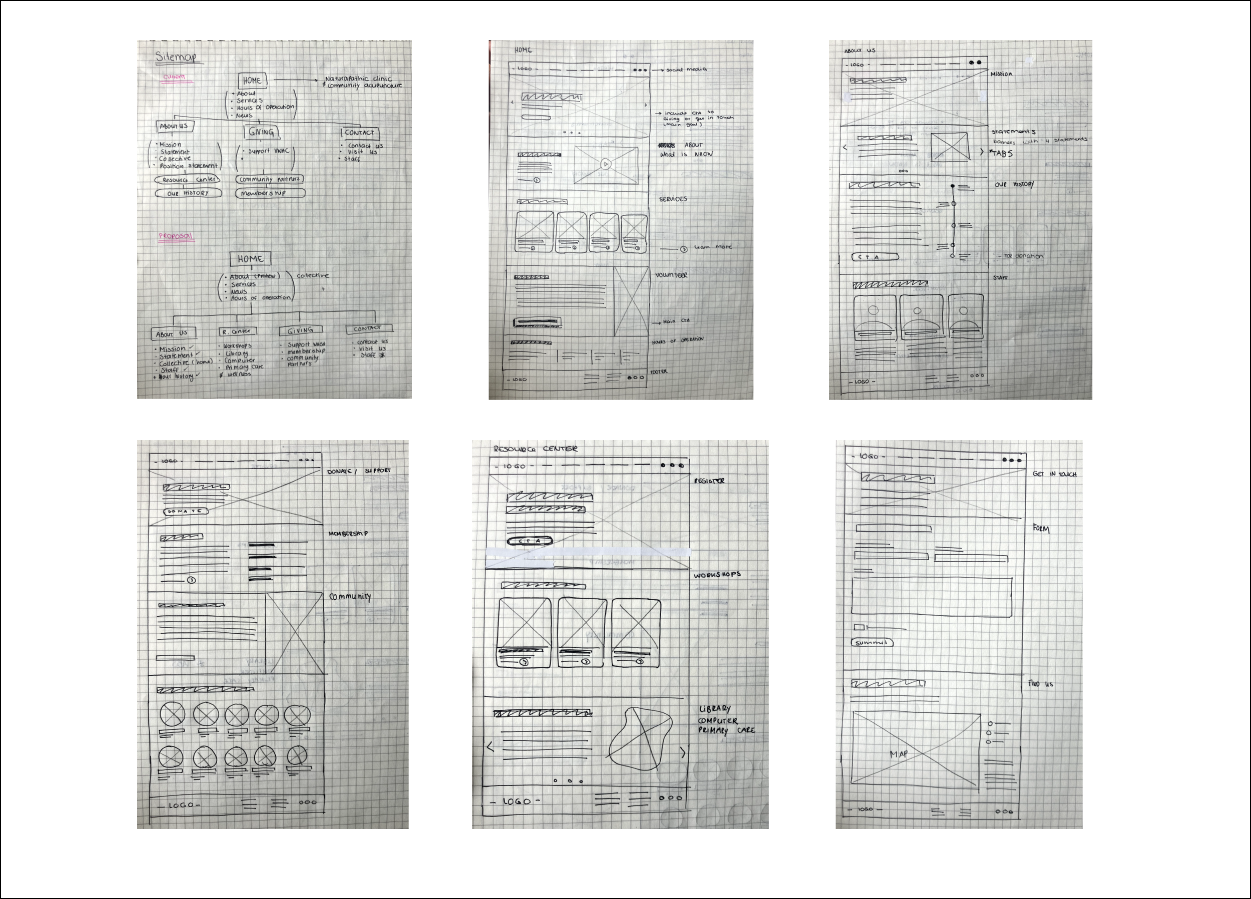 Sitemap
HOME
Naturopathic clinic
Community acupuncture
• About
• Services
• Hours of operation
• News
ABOUT US
GIVING
CONTACT
• Mission
Statement
• Collective
• Position statement
• Support
• Contact us
• Visit us
• Staff
Resource Center
Community Partners
OUR HISTORY
Membership
PROPOSAL
HOME
• About (Preview)
• Services
• News
• Hours of operation
Collective
ABOUT US
R. Center
GIVING
CONTACT
• Mission ✓
• Statement ✓
• Collective (home)
• Staff ✓
• Workshops
• Library
• Computer
• Primary care
• Support
• membership
• community
partners
• contact us
• Visit us
• Staff
HOME
- LOGO -
→ Social media
→ Include CTA to
Giving or get in touch
(main goal)
ABOUT
What is
SERVICES
→ learn more
VOLUNTEER
HOURS OF OPERATION
FOOTER
- LOGO -
ABOUT US
- LOGO -
MISSION
STATEMENTS
Banners with 4 statements
*TABS
OUR HISTORY
CTA
STAFF
- LOGO -
- LOGO -
DONATE / SUPPORT
DONATE
MEMBERSHIP
Community
- LOGO -
RESOURCE CENTER
- LOGO -
REGISTER
CTA
WORKSHOPS
LIBRARY
COMPUTER
PRIMARY CARE
- LOGO -
- LOGO -
GET IN TOUCH
FORM
FIND US
MAP
- LOGO -